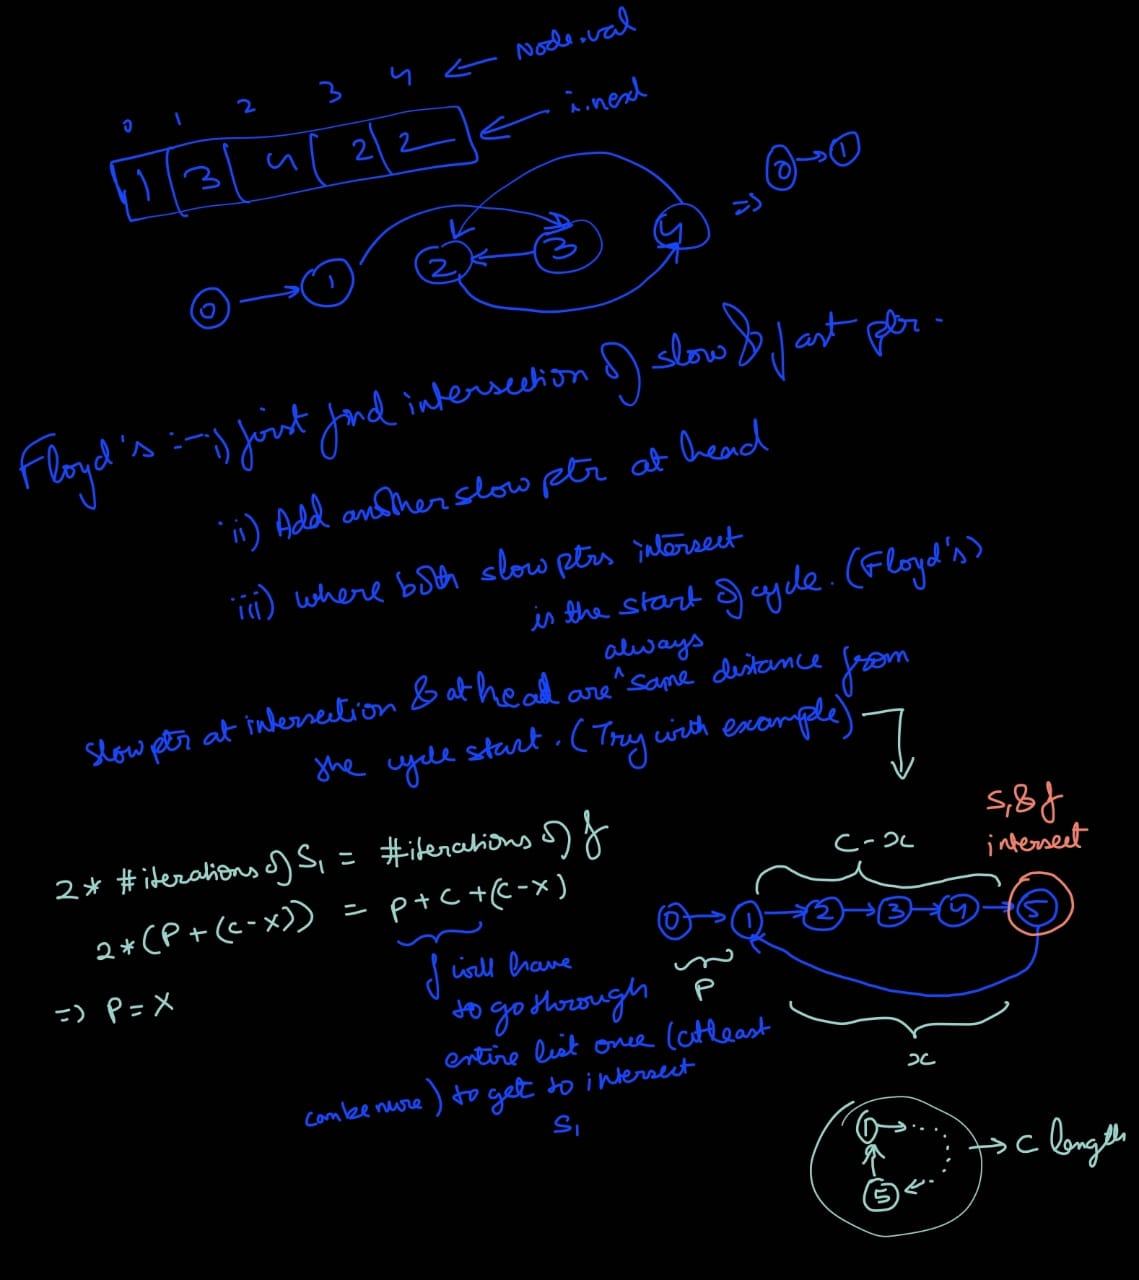 0 1 2 3 4 ← Node.val
1 3 4 2 2 ← i.next
0 → 1 2 3 4 => 0 → 1
Floyd's :- i) first find intersection of slow & fast ptr.
ii) Add another slow ptr at head
iii) where both slow ptrs intersect
is the start of cycle. (Floyd's)
always
slow ptr at intersection & at head are ^ same distance from
the cycle start. (Try with example)
S, & f
intersect
2* #iterations of S1 = #iterations of f
2*(P+(c-x)) = P+C+(c-x)
=> P=X
f will have
to go through
entire list once (atleast
can be more) to get to intersect
S1
C-x
0 → 1 → 2 → 3 → 4 → 5
P
x
1
5
→ C length